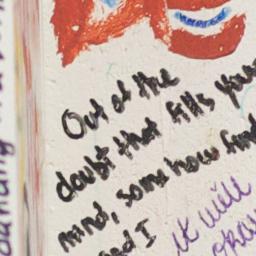 Out of the
doubt that fills your
mind, somehow find
I
it will
okay